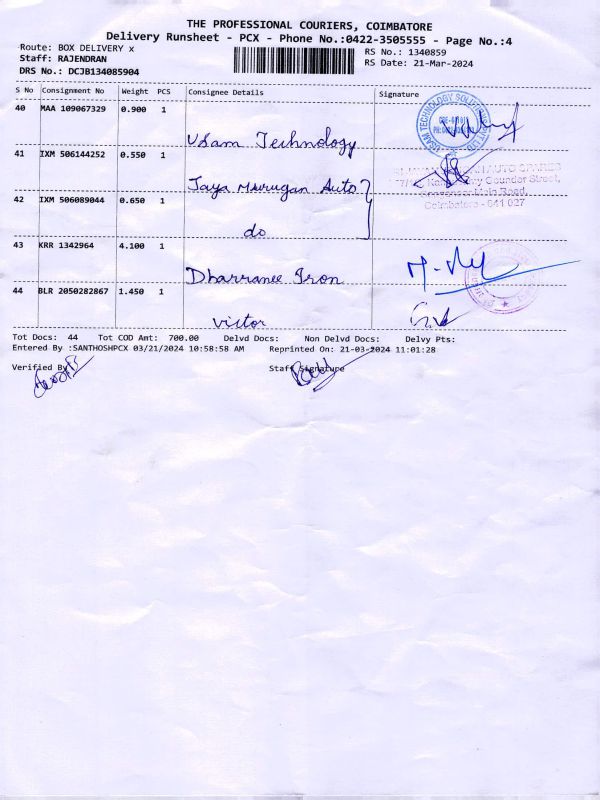 THE PROFESSIONAL COURIERS, COIMBATORE
Delivery Runsheet - PCX - Phone No.:0422-3505555 - Page No.:4
Route: BOX DELIVERY x
RS No.: 1340859
Staff: RAJENDRAN
RS Date: 21-Mar-2024
DRS No.: DCJB134085904
S No Consignment No Weight PCS Consignee Details Signature
40 MAA 109067329 0.900 1
Usam Technology
41 IXM 506144252 0.550 1
Jaya Murugan Auto
42 IXM 506089044 0.650 1
do
43 KRR 1342964 4.100 1
Dharranee Iron
44 BLR 2050282867 1.450 1
victor
AUTO SPARES
Counder Street,
Main Road,
Coimbatore - 641 027
Tot Docs: 44 Tot COD Amt: 700.00 Delvd Docs: Non Delvd Docs: Delvy Pts:
Entered By :SANTHOSHPCX 03/21/2024 10:58:58 AM Reprinted On: 21-03-2024 11:01:28
Verified By
Staff Signature